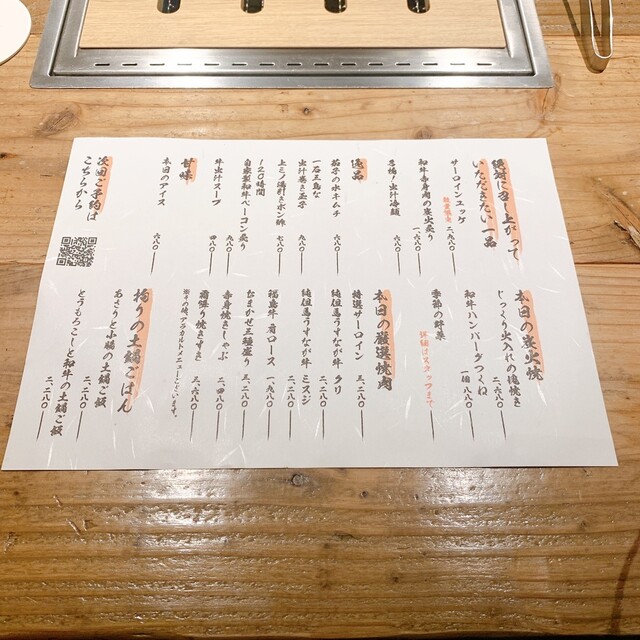 絶対に召し上がって
いただきたい一品
サーロインユッケ 数量限定 二、九八〇
和牛赤身肉の炭火炙り 一、六八〇
名物！出汁冷麺 六八〇
逸品
茄子の水キムチ 六八〇
一石三鳥な
出汁巻き玉子 九八〇
上ミノ湯引きポン酢 七八〇
120時間
自家製和牛ベーコン炙り 九八〇
牛出汁スープ 四八〇
甘味
本日のアイス 六八〇
次回ご予約は
こちらから
本日の炭火焼
じっくり出入れの塊焼き 二、六八〇
和牛ハンバーグつくね 一個 八八〇
季節の野菜 詳細はスタッフまで
本日の厳選焼肉
特選サーロイン 三、二八〇
純但馬うすなが牛 クリ 二、二八〇
純但馬うすなが牛 ミスジ 二、二八〇
福島牛 肩ロース 一、九八〇
おまかせ三種盛り 三、二八〇
赤身焼きしゃぶ 二、四八〇
霜降り焼きすき 三、二八〇
※その他、アラカルトメニューございます。
拘りの土鍋ごはん
あさりと小鍋の土鍋ご飯 二、二八〇
とうもろこしと和牛の土鍋ご飯 二、二八〇